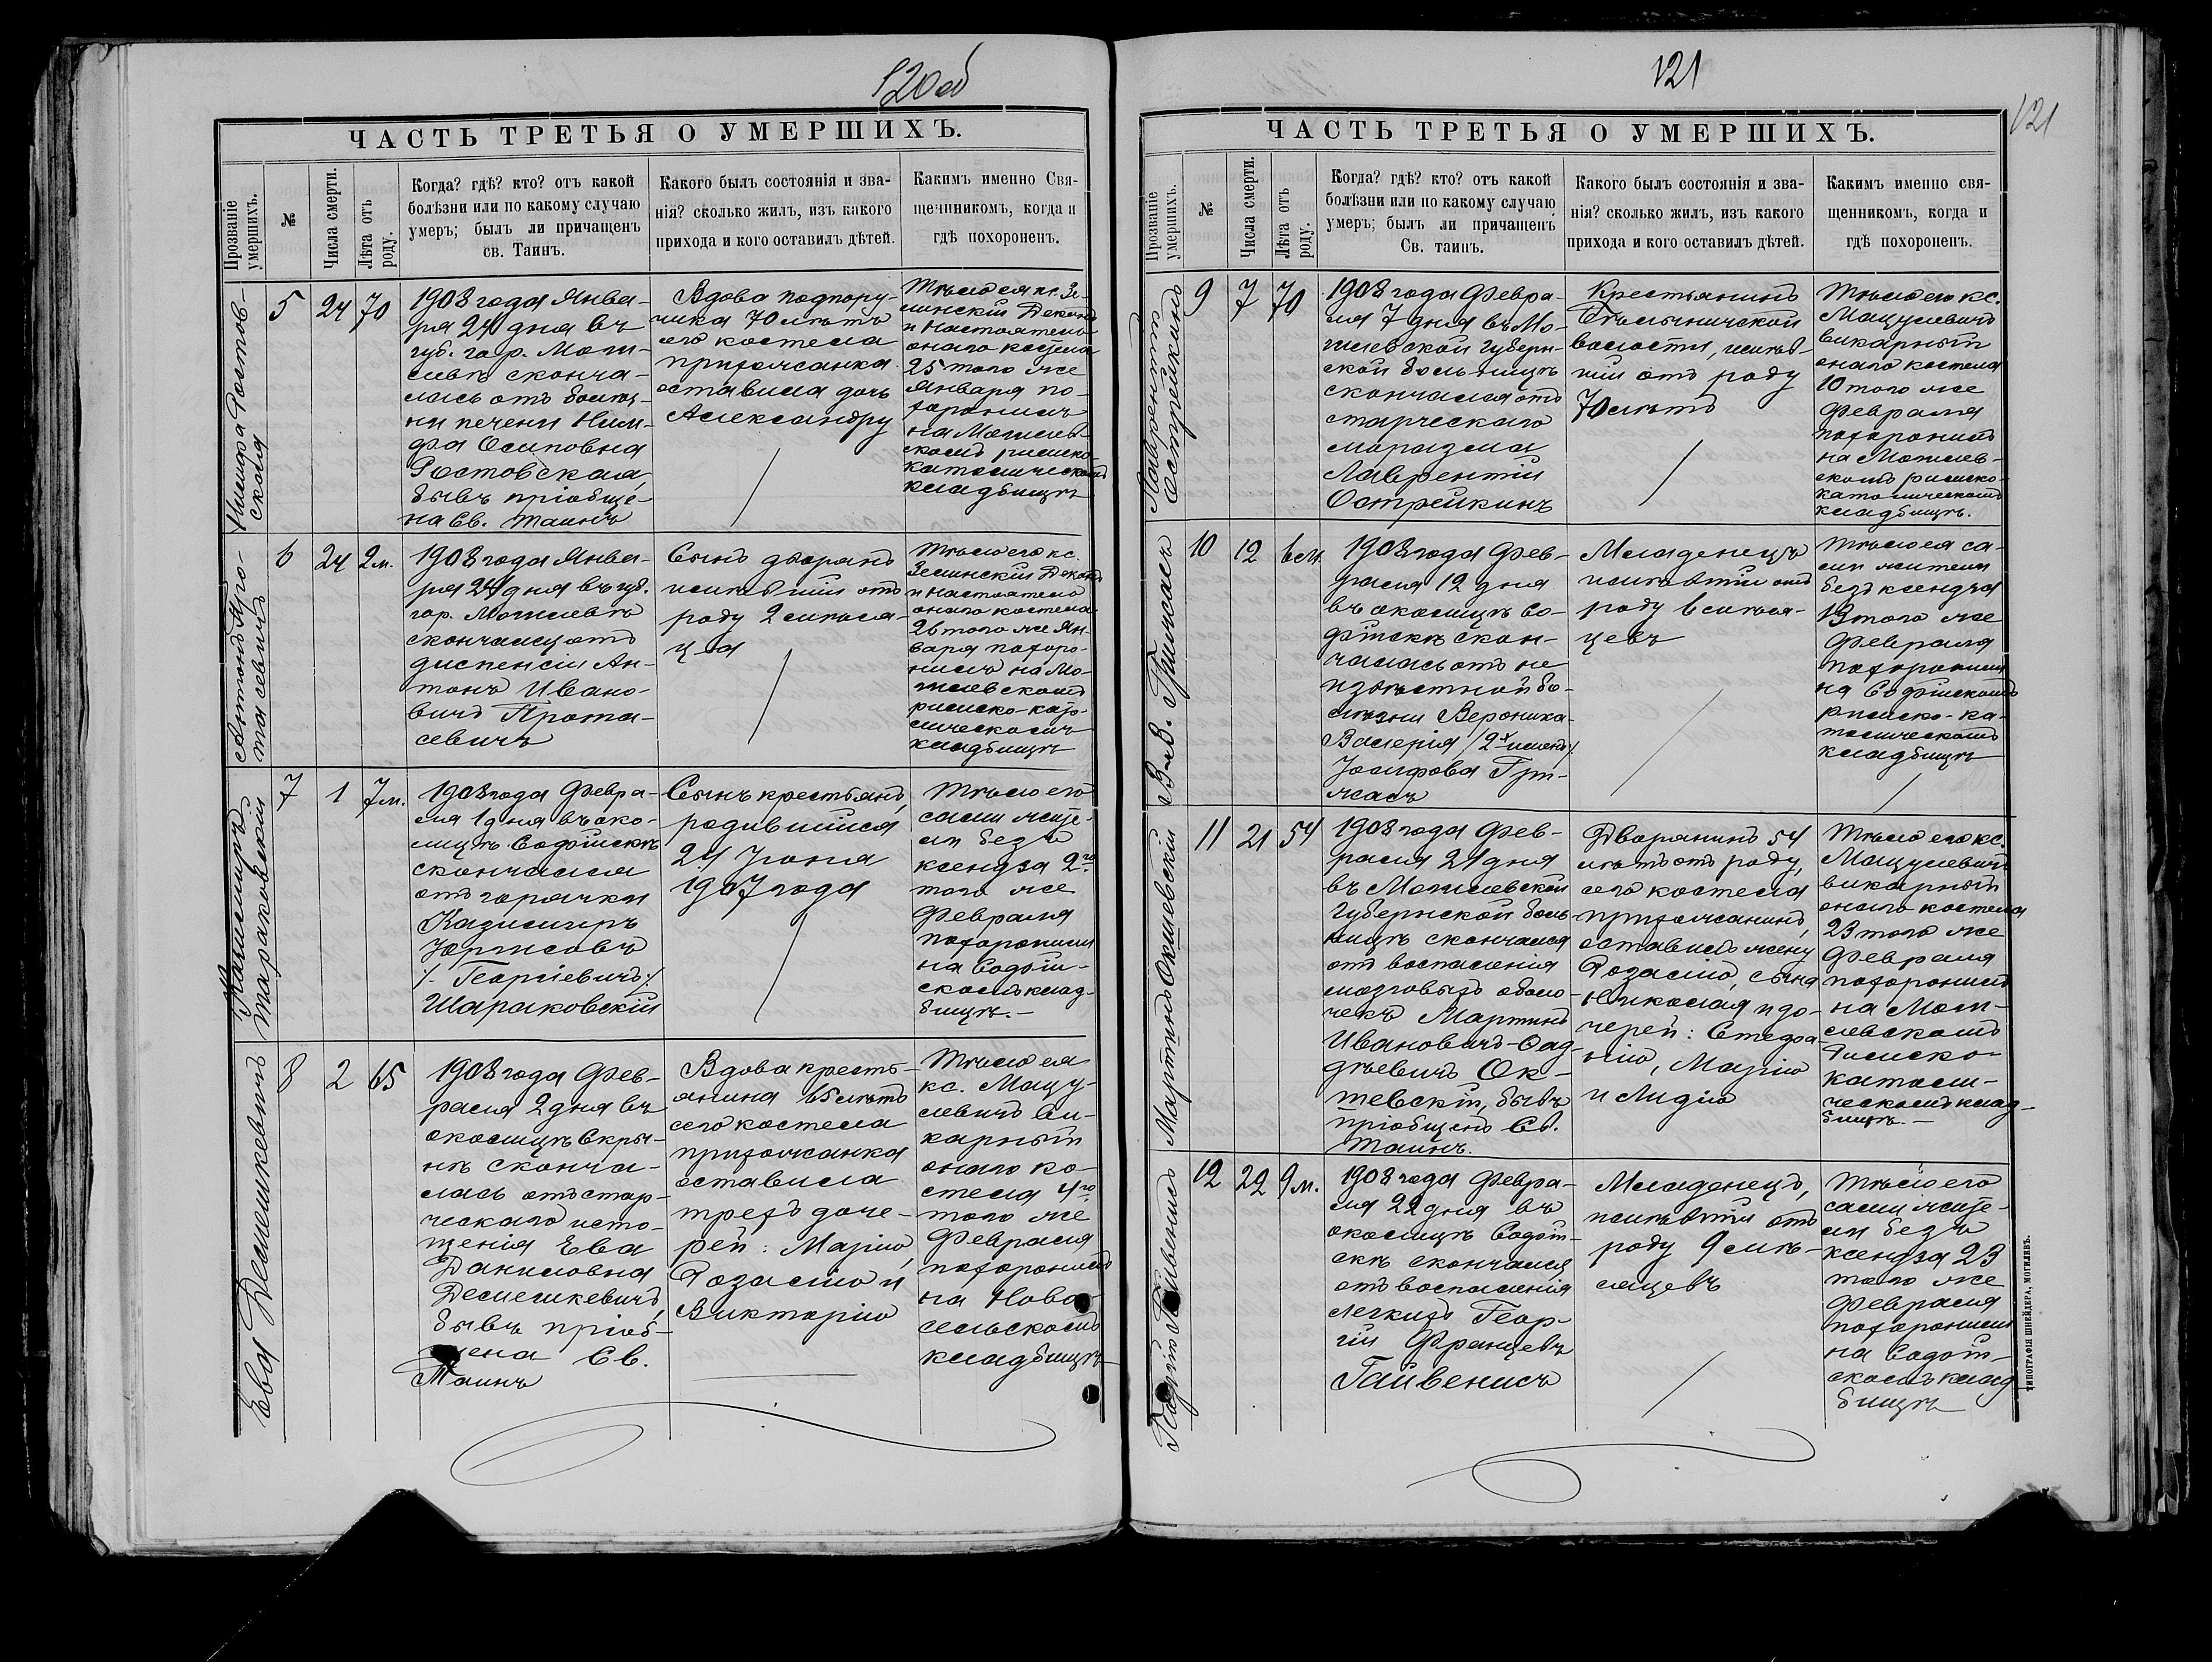 120об
ЧАСТЬ ТРЕТЬЯ О УМЕРШИХЪ.
Прозваніе умершихъ.
№
Числа смерти.
Лѣта отъ роду.
Когда? гдѣ? кто? отъ какой
болѣзни или по какому случаю
умеръ; былъ ли причащенъ
св. Таинъ.
Какого былъ состоянія и зва-
нія? сколько жилъ, изъ какого
прихода и кого оставилъ дѣтей.
Какимъ именно Свя-
щенникомъ, когда и
гдѣ похороненъ.
Нимфа Ростов-
ская
5
24
70
1908 года Янва-
ря 24 дня въ
губ. гор. Моги-
левѣ сконча-
лась отъ болѣз-
ни печени Ним-
фа Осиповна
Ростовская,
бывъ пріобще-
на Св. Таинъ
Вдова подпору-
чика 70 лѣтъ
его костела
прихожанка
оставила дочь
Александру
Тѣло ея кс. Зе-
линскій Деканъ
и Настоятель
онаго костела
25 того же
Января по-
хоронилъ
на Могилев-
скомъ римско-
католическомъ
кладбищѣ
Антонъ Про-
тасевичъ
6
24
2 м.
1908 года Янва-
ря 24 дня въ губ.
гор. Могилевѣ
скончался отъ
диспенсіи Ан-
тонъ Ивано-
вичъ Прота-
севичъ
Сынъ дворянъ
жившій отъ
роду 2 мѣся-
ц-а
Тѣло его кс.
Зелинскій Деканъ
и Настоятель
онаго костела
26 того же Ян-
варя похоро-
нилъ на Мо-
гилевскомъ
римско-като-
лическомъ
кладбищѣ
Казимиръ
Шараковскій
7
1
7 м.
1908 года Февра-
ля 1 дня въ око-
лицѣ Софійскѣ
скончался
отъ горячки
Казимиръ
Юрьисовъ
/. Георгіевичъ /
Шараковскій
Сынъ крестьянъ,
родившійся
24 Іюня
1907 года
Тѣло его
сами жите-
ли безъ
ксендза 2го
того же
Февраля
похоронили
на Софій-
скомъ клад-
бищѣ.—
Ева Демешкевичъ
8
2
65
1908 года Фев-
раля 2 дня въ
околицѣ Скры-
нѣ сконча-
лась отъ стар-
ческаго исто-
щенія Ева
Даниловна
Демешкевичъ,
бывъ пріоб-
щена Св.
Таинъ
Вдова кресть-
янина 65 лѣтъ
сего костела
прихожанка
оставила
трехъ доче-
рей: Марію,
Розалію и
Викторію
Тѣло ея
кс. Мацу-
левичъ ви-
карный
онаго ко-
стела 4го
того же
Февраля
похоронилъ
на Ново-
сельскомъ
кладбищѣ
121
121
ЧАСТЬ ТРЕТЬЯ О УМЕРШИХЪ.
Прозваніе умершихъ.
№
Числа смерти.
Лѣта отъ роду.
Когда? гдѣ? кто? отъ какой
болѣзни или по какому случаю
умеръ; былъ ли причащенъ
Св. таинъ.
Какого былъ состоянія и зва-
нія? сколько жилъ, изъ какого
прихода и кого оставилъ дѣтей.
Какимъ именно свя-
щенникомъ, когда и
гдѣ похороненъ.
Лаврентій
Острейкинъ
9
7
70
1908 года Февра-
ля 7 дня въ Мо-
гилевской Губерн-
ской больницѣ
скончался отъ
старческаго
маразма
Лаврентій
Острейкинъ
Крестьянинъ
Бѣлыничской
волости, жив-
шій отъ роду
70 лѣтъ
Тѣло его кс.
Мацулевичъ
викарный
онаго костела
10 того же
Февраля
похоронилъ
на Могилев-
скомъ римско-
католическомъ
кладбищѣ.
В.-В. Гричасъ
10
12
6 м
1908 года Фев-
раля 12 дня
въ околицѣ Со-
фійскѣ скон-
чалась отъ не
извѣстной бо-
лѣзни Вероника-
Валерія /2х именъ/
Іосифова Гри-
часъ
Младенецъ
жившій отъ
роду 6 мѣся-
цевъ
Тѣло ея са-
ми жители
безъ ксендза
13 того же
Февраля
похоронили
на Софійскомъ
римско-ка-
толическомъ
кладбищѣ
Мартинъ Окшевскій
11
21
54
1908 года Фев-
раля 21 дня
въ Могилевской
Губернской боль-
ницѣ скончался
отъ воспаленія
мозговыхъ оболо-
чекъ Мартинъ
Ивановичъ-Фад-
дѣевичъ Ок-
шевскій, бывъ
пріобщенъ Св.
Таинъ.
Дворянинъ 54
лѣтъ отъ роду,
сего костела
прихожанинъ,
оставилъ жену
Розалію, сына
Николая и до-
черей: Стефа-
нію, Марію
и Лидію
Тѣло его кс.
Мацулевичъ
викарный
онаго костела
23 того же
Февраля
похоронилъ
на Моги-
левскомъ
Римско-
католи-
ческомъ клад-
бищѣ.—
Гайвенисъ
12
22
9 м.
1908 года Февра-
ля 22 дня въ
околицѣ Софій-
скѣ скончался
отъ воспаленія
легкихъ Геор-
гій Францевъ
Гайвенисъ
Младенецъ,
жившій отъ
роду 9 мѣ-
сяцевъ
Тѣло его
сами жите-
ли безъ
ксендза 23
того же
Февраля
похоронили
на Софій-
скомъ клад
бищѣ
ТИПОГРАФІЯ ШНЕЙДЕРА, МОГИЛЕВЪ.